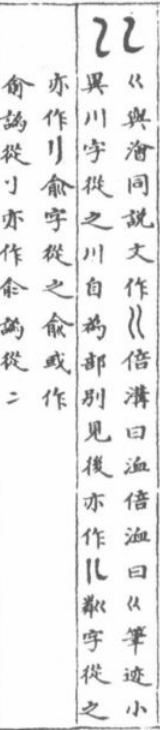 巜與澮同說文作巜倍溝曰洫倍洫曰巜筆迹小
異川字從之川自為部別見後亦作巜粼字從之
亦作刂俞字從之俞或作
俞譌從刂亦作俞譌從二